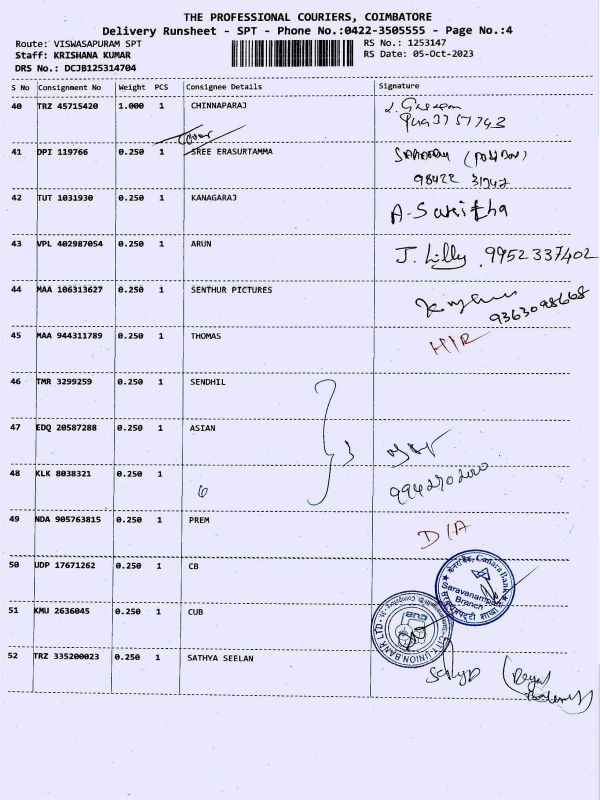 THE PROFESSIONAL COURIERS, COIMBATORE
Delivery Runsheet - SPT - Phone No.:0422-3505555 - Page No.:4
Route: VISWASAPURAM SPT RS No.: 1253147
Staff: KRISHANA KUMAR RS Date: 05-Oct-2023
DRS No.: DCJB125314704
S No Consignment No Weight PCS Consignee Details Signature
40 TRZ 45715420 1.000 1 CHINNAPARAJ
41 DPI 119766 0.250 1 SREE ERASURTAMMA
98422 31747
42 TUT 1031930 0.250 1 KANAGARAJ A-Saritha
43 VPL 402987054 0.250 1 ARUN J. Lilly 9952337402
44 MAA 106313627 0.250 1 SENTHUR PICTURES
9363098668
45 MAA 944311789 0.250 1 THOMAS
46 TMR 3299259 0.250 1 SENDHIL
47 EDQ 20587288 0.250 1 ASIAN 3
48 KLK 8038321 0.250 1
49 NDA 905763815 0.250 1 PREM D/A
50 UDP 17671262 0.250 1 CB
केनरा बैंक Canara Bank
Saravanampatti
Branch
51 KMU 2636045 0.250 1 CUB
CUB
CITY UNION BANK LTD
52 TRZ 335200023 0.250 1 SATHYA SEELAN